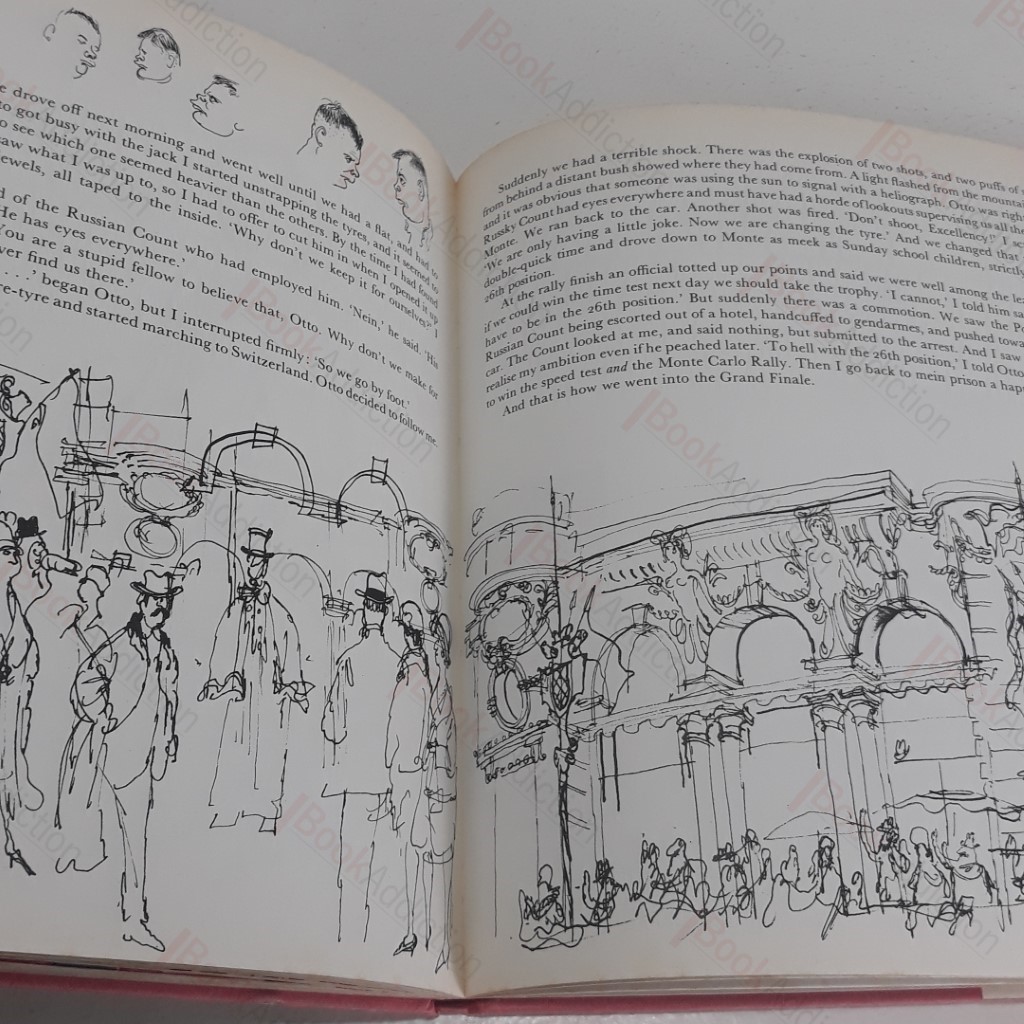 e drove off next morning and went well until we had a flat, and had to
to got busy with the jack I started unstrapping the tyres, and it seemed to
o see which one seemed heavier than the others. By the time I had found
saw what I was up to, so I had to offer to cut him in when I opened it up
ewels, all taped to the inside. 'Why don't we keep it for ourselves?' I
d of the Russian Count who had employed him. 'Nein,' he said. 'His
He has eyes everywhere.'
You are a stupid fellow to believe that, Otto. Why don't we make for
ver find us there.'
. . . .' began Otto, but I interrupted firmly: 'So we go by foot.'
re-tyre and started marching to Switzerland. Otto decided to follow me.
Suddenly we had a terrible shock. There was the explosion of two shots, and two puffs of
from behind a distant bush showed where they had come from. A light flashed from the mountain
and it was obvious that someone was using the sun to signal with a heliograph. Otto was right
Russky Count had eyes everywhere and must have had a horde of lookouts supervising us all the
Monte. We ran back to the car. Another shot was fired. 'Don't shoot, Excellency!' I
'We are only having a little joke. Now we are changing the tyre.' And we changed that
double-quick time and drove down to Monte as meek as Sunday school children, strictly
26th position.
At the rally finish an official totted up our points and said we were well among the lea
if we could win the time test next day we should take the trophy. 'I cannot,' I told him
have to be in the 26th position.' But suddenly there was a commotion. We saw the
Russian Count being escorted out of a hotel, handcuffed to gendarmes, and pushed towa
car. The Count looked at me, and said nothing, but submitted to the arrest. And I saw
realise my ambition even if he peached later. 'To hell with the 26th position,' I told Otto
to win the speed test and the Monte Carlo Rally. Then I go back to mein prison a
And that is how we went into the Grand Finale.
BookAddiction